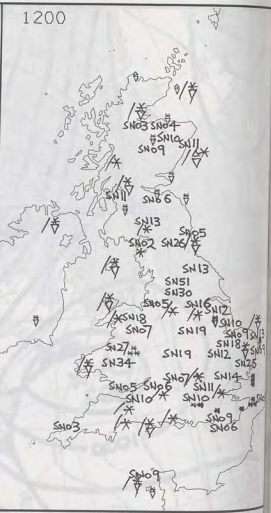 1200
SN03 SN04
SN10
SN09 SN11
SN11
SN66
SN13
SN02 SN26 SN05
SN13
SN51
SN30
SN05 SN16
SN18 SN12
SN10
SN07 SN19 SN09
SN18
SN27 SN19 SN12
SN34 SN25
SN07 SN14
SN05 SN06 SN11
SN10 SN10
SN09
SN03 SN06
SN09